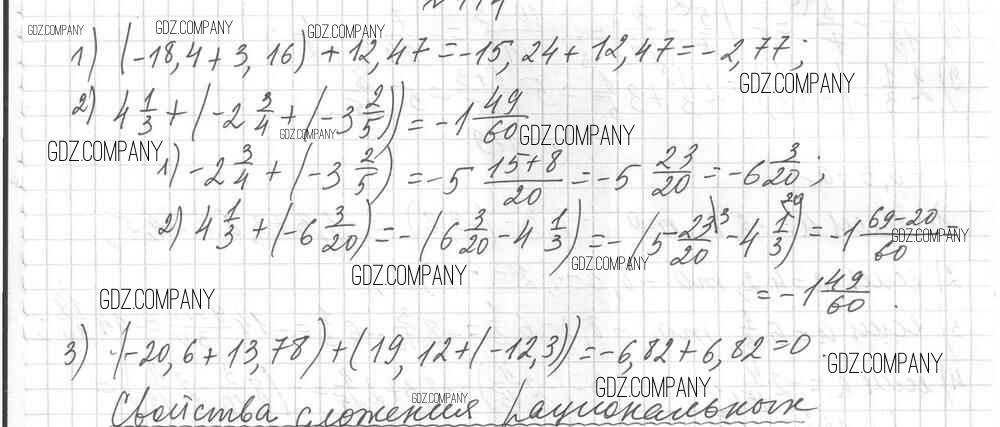 GDZ.COMPANY GDZ.COMPANY GDZ.COMPANY
1) (-18,4 + 3,16) + 12,47 = -15,24 + 12,47 = -2,77;
GDZ.COMPANY
2) 4 1/3 + (-2 3/4 + (-3 2/5)) = -1 49/60
GDZ.COMPANY GDZ.COMPANY
GDZ.COMPANY
1) -2 3/4 + (-3 2/5) = -5 15+8/20 = -5 23/20 = -6 3/20;
2) 4 1/3 + (-6 3/20) = -(6 3/20 - 4 1/3) = -(5 23/20\3 - 4 1/3\20) = -1 69-20/60 =
GDZ.COMPANY
GDZ.COMPANY GDZ.COMPANY
GDZ.COMPANY
= -1 49/60.
3) (-20,6 + 13,78) + (19,12 + (-12,3)) = -6,82 + 6,82 = 0.
GDZ.COMPANY
GDZ.COMPANY GDZ.COMPANY
Свойства сложения рациональных